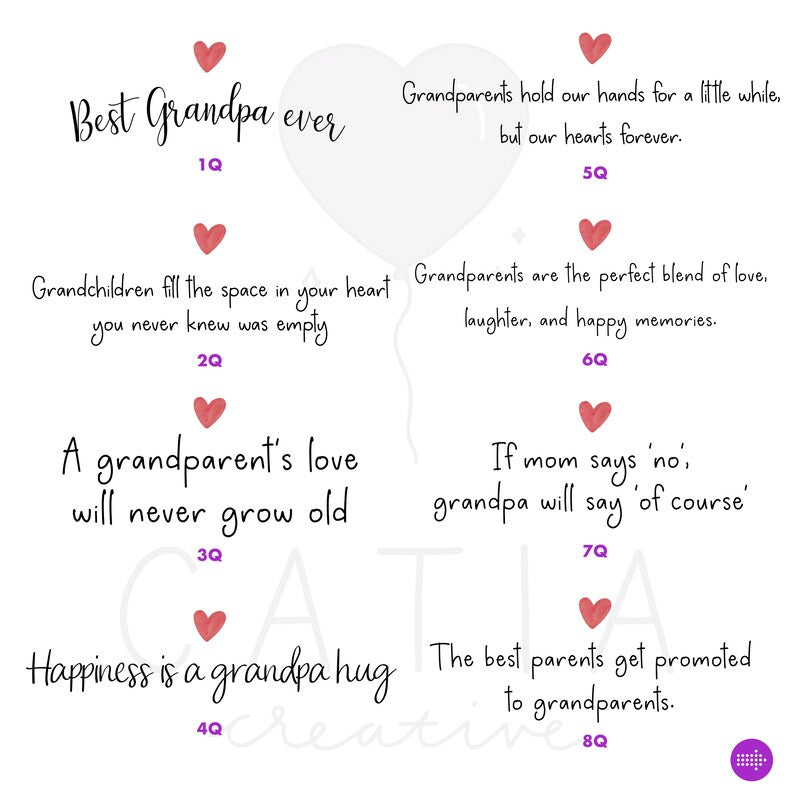 Best Grandpa ever
1Q
Grandchildren fill the space in your heart
you never knew was empty
2Q
A grandparent's love
will never grow old
3Q
Happiness is a grandpa hug
4Q
Grandparents hold our hands for a little while,
but our hearts forever.
5Q
Grandparents are the perfect blend of love,
laughter, and happy memories.
6Q
If mom says 'no',
grandpa will say 'of course'
7Q
The best parents get promoted
to grandparents.
8Q
CATIA
creative